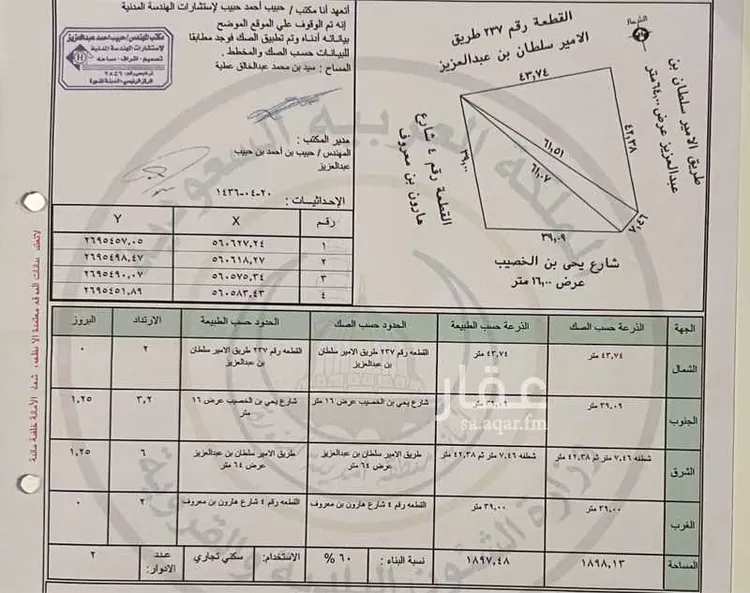 أتعهد أنا مكتب / حبيب أحمد حبيب لإستشارات الهندسة المدنية
إنه تم الوقوف علي الموقع الموضح
بياناته أدناه وتم تطبيق الصك فوجد مطابقا
للبيانات حسب الصك والمخطط .
المساح : سيد بن محمد عبدالخالق عطية
مكتب المهندس/حبيب احمد عبدالعزيز
لإستشارات الهندسة المدنية
تصميم - اشراف - مساحه
H
مدير المكتب :
المهندس / حبيب بن أحمد بن حبيب
عبدالعزيز
٢٠-٠٤-١٤٣٦
القطعة رقم ٢٣٧ طريق
الامير سلطان بن عبدالعزيز
الشمال
طريق الامير سلطان بن
عبدالعزيز عرض ٦٤,٠٠ متر
القطعة رقم ٤ شارع
هارون بن معروف
٤٣,٧٤
٤٢,٣٨
٣٩,٠٠
٦١,٥١
٦١,٠٧
٧,٤٦
٣٩,٠٩
شارع يحى بن الخصيب
عرض ١٦,٠٠ متر
الإحداثيات :
رقم X Y
١ ٥٦٠٦٢٧,٢٤ ٢٦٩٥٤٥٧,٠٥
٢ ٥٦٠٦١٨,٢٧ ٢٦٩٥٤٩٨,٤٧
٣ ٥٦٠٥٧٥,٣٤ ٢٦٩٥٤٩٠,٠٧
٤ ٥٦٠٥٨٣,٤٣ ٢٦٩٥٤٥١,٨٩
الجهة الذرعة حسب الصك الذرعة حسب الطبيعة الحدود حسب الصك الحدود حسب الطبيعة الارتداد البروز
الشمال ٤٣,٧٤ متر ٤٣,٧٤ متر القطعه رقم ٢٣٧ طريق الامير سلطان بن عبدالعزيز القطعه رقم ٢٣٧ طريق الامير سلطان بن عبدالعزيز ٢ ٠
الجنوب ٣٩,٠٩ متر ٣٩,٠٩ متر شارع يحى بن الخصيب عرض ١٦ متر شارع يحى بن الخصيب عرض ١٦ متر ٣,٢ ١,٢٥
الشرق شطفه ٧,٤٦ متر ثم ٤٢,٣٨ متر شطفه ٧,٤٦ متر ثم ٤٢,٣٨ متر طريق الامير سلطان بن عبدالعزيز عرض ٦٤ متر طريق الامير سلطان بن عبدالعزيز عرض ٦٤ متر ٦ ١,٢٥
الغرب ٣٩,٠٠ متر ٣٩,٠٠ متر القطعه رقم ٤ شارع هارون بن معروف القطعه رقم ٤ شارع هارون بن معروف ٢ ٠
المساحة ١٨٩٨,١٣ ١٨٩٧,٤٨ نسبة البناء : ٦٠ % الاستخدام: سكني تجاري عدد الادوار: ٢
عقار
sa.aqar.fm
المملكة العربية السعودية
وزارة الشئون البلدية والقروية